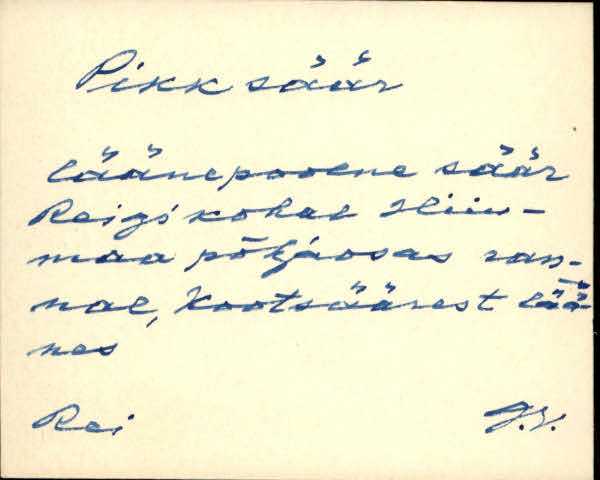 Pikk säär
läänepoolne säär
Reigi kohal Hiiu-
maa põhjaosas ran-
nal, Kootsäärest lää-
nes
Rei
J.V.